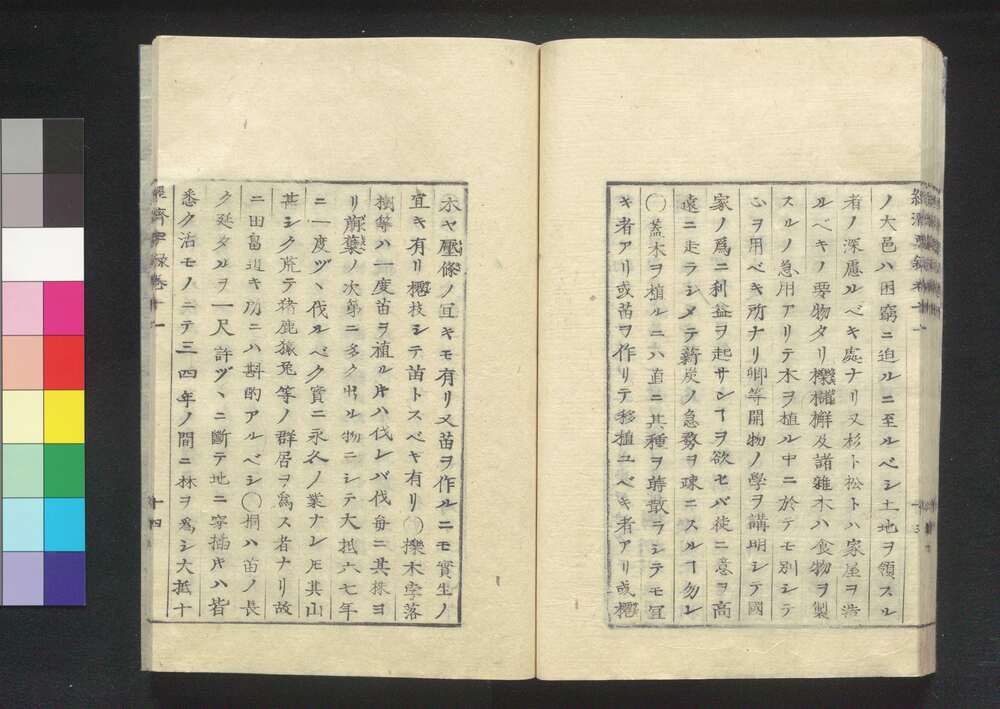 ノ大邑ハ困窮ニ迫ルニ至ルベシ土地ヲ領スル
者ノ深慮ルベキ處ナリ又杉ト松トハ家屋ヲ造
ルベキノ要物タリ櫟槧檞及諸雜木ハ食物ヲ製
スルノ急用アリテ木ヲ植ル中ニ於テモ別シテ
心ヲ用ベキ所ナリ卿等開物ノ學ヲ講明シテ國
家ノ爲ニ利益ヲ起サンヿヲ欲セバ徒ニ意ヲ高
遠ニ走ラシメテ薪炭ノ急務ヲ疎ニスルヿ勿レ
○蓋木ヲ植ルニハ直ニ其種ヲ蒔散ラシテモ宜
キ者アリ或苗ヲ作リテ移植ユベキ者アリ或
經濟要錄卷十一
十三
木ヤ壓條ノ宜キモ有リ又苗ヲ作ルニモ實生ノ
宜キ有リ枝シテ苗トスベキ有リ○櫟木字落
樹等ハ一度苗ヲ植ル片ハ伐レバ伐毎ニ其株ヨ
リ蘖ノ次第ニ多ク出ル物ニシテ大抵六七年
ニ一度ヅヽ伐ルベク實ニ永久ノ業ナレ𪜈其山
甚シク荒テ猪鹿猿兎等ノ群居ヲ爲ス者ナリ故
ニ田畠近キ所ニハ斟酌アルベシ○桐ハ苗ノ長
ク延タルヲ一尺許ヅヽニ斷テ地ニ插片ハ皆
悉ク活モノニテ三四年ノ間ニ林ヲ爲シ大抵十
經濟要錄卷十一
十四